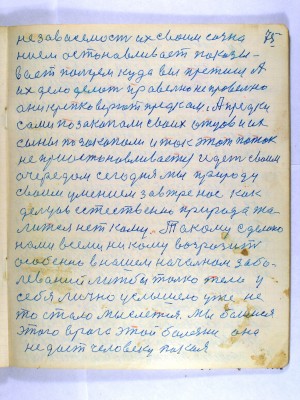 75
независемост их своим созна
нием останавливает показы-
вает почем куда вы прешися А
их дело делат правелно неправелно
они крепко верют предкам. А предки
сами позакопали своих отцов и их
сыны позакопали и так этот поток
не приостонавливается идет своим
очередом сегодня мы природу
своим умением завтре нас как
делцов естественно природа жа-
лится нет кому. Такому сделано
нами всеми никому возрозит
особенно в нашем началном забо-
левании литбы толко тело у
себя лично услышело уже не
то стало мыслется. мы боимся
этого врага этой болезни она
не дает человеку покоя